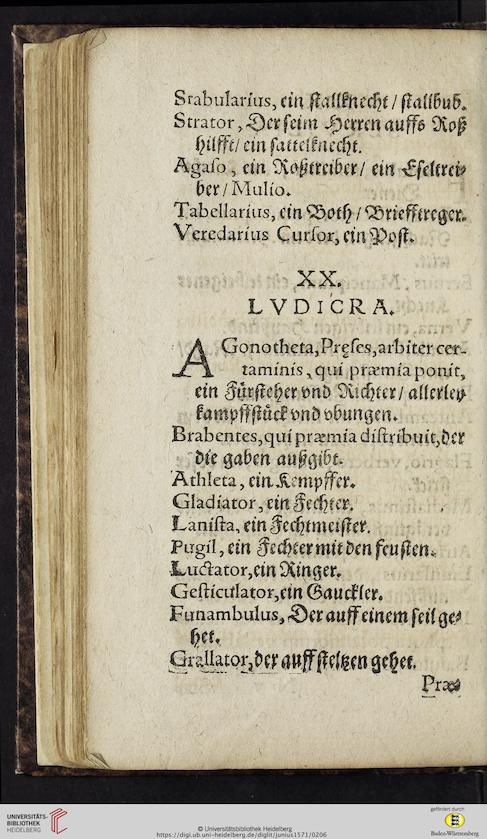 Stabularius, ein stallknecht / stallbub.
Strator, Der seim Herren auffs Roß
hilfft / ein sattelknecht.
Agaso, ein Roßtreiber / ein Eseltrei⸗
ber / Mulio.
Tabellarius, ein Both / Briefftreger.
Veredarius Cursor, ein Post.
XX.
LVDICRA.
AGonotheta, Pręses, arbiter cer-
taminis, qui præmia ponit,
ein Fürsteher vnd Richter / allerley
kampffstück vnd vbungen.
Brabentes, qui præmia distribuit, der
die gaben außgibt.
Athleta, ein Kempffer.
Gladiator, ein Fechter.
Lanista, ein Fechtmeister.
Pugil, ein Fechter mit den feusten.
Luctator, ein Ringer.
Gesticulator, ein Gauckler.
Funambulus, Der auff einem seil ge⸗
het.
Grallator, der auff steltzen gehet.
Præ⸗
UNIVERSITÄTS-
BIBLIOTHEK
HEIDELBERG
© Universitätsbibliothek Heidelberg
https://digi.ub.uni-heidelberg.de/diglit/junius1571/0206
gefördert durch
Baden-Württemberg